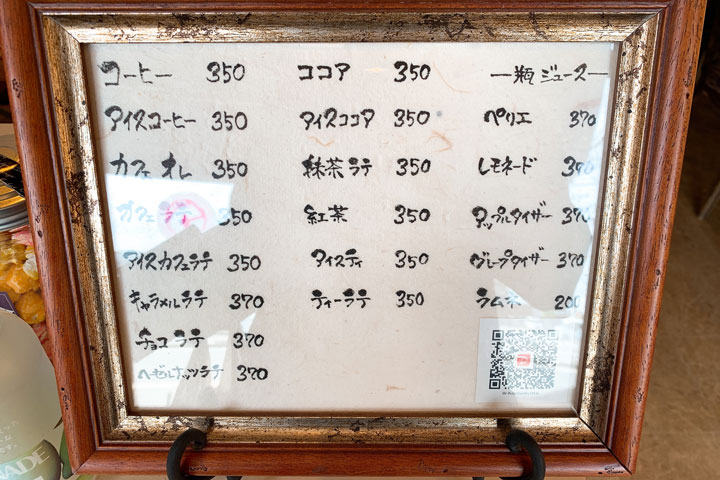 コーヒー 350
アイスコーヒー 350
カフェオレ 350
カフェラテ 350
アイスカフェラテ 350
キャラメルラテ 370
チョコラテ 370
ヘーゼルナッツラテ 370
ココア 350
アイスココア 350
抹茶ラテ 350
紅茶 350
アイスティ 350
ティーラテ 350
―瓶ジュース―
ペリエ 370
レモネード 370
アップルタイザー 370
グレープタイザー 370
ラムネ 200